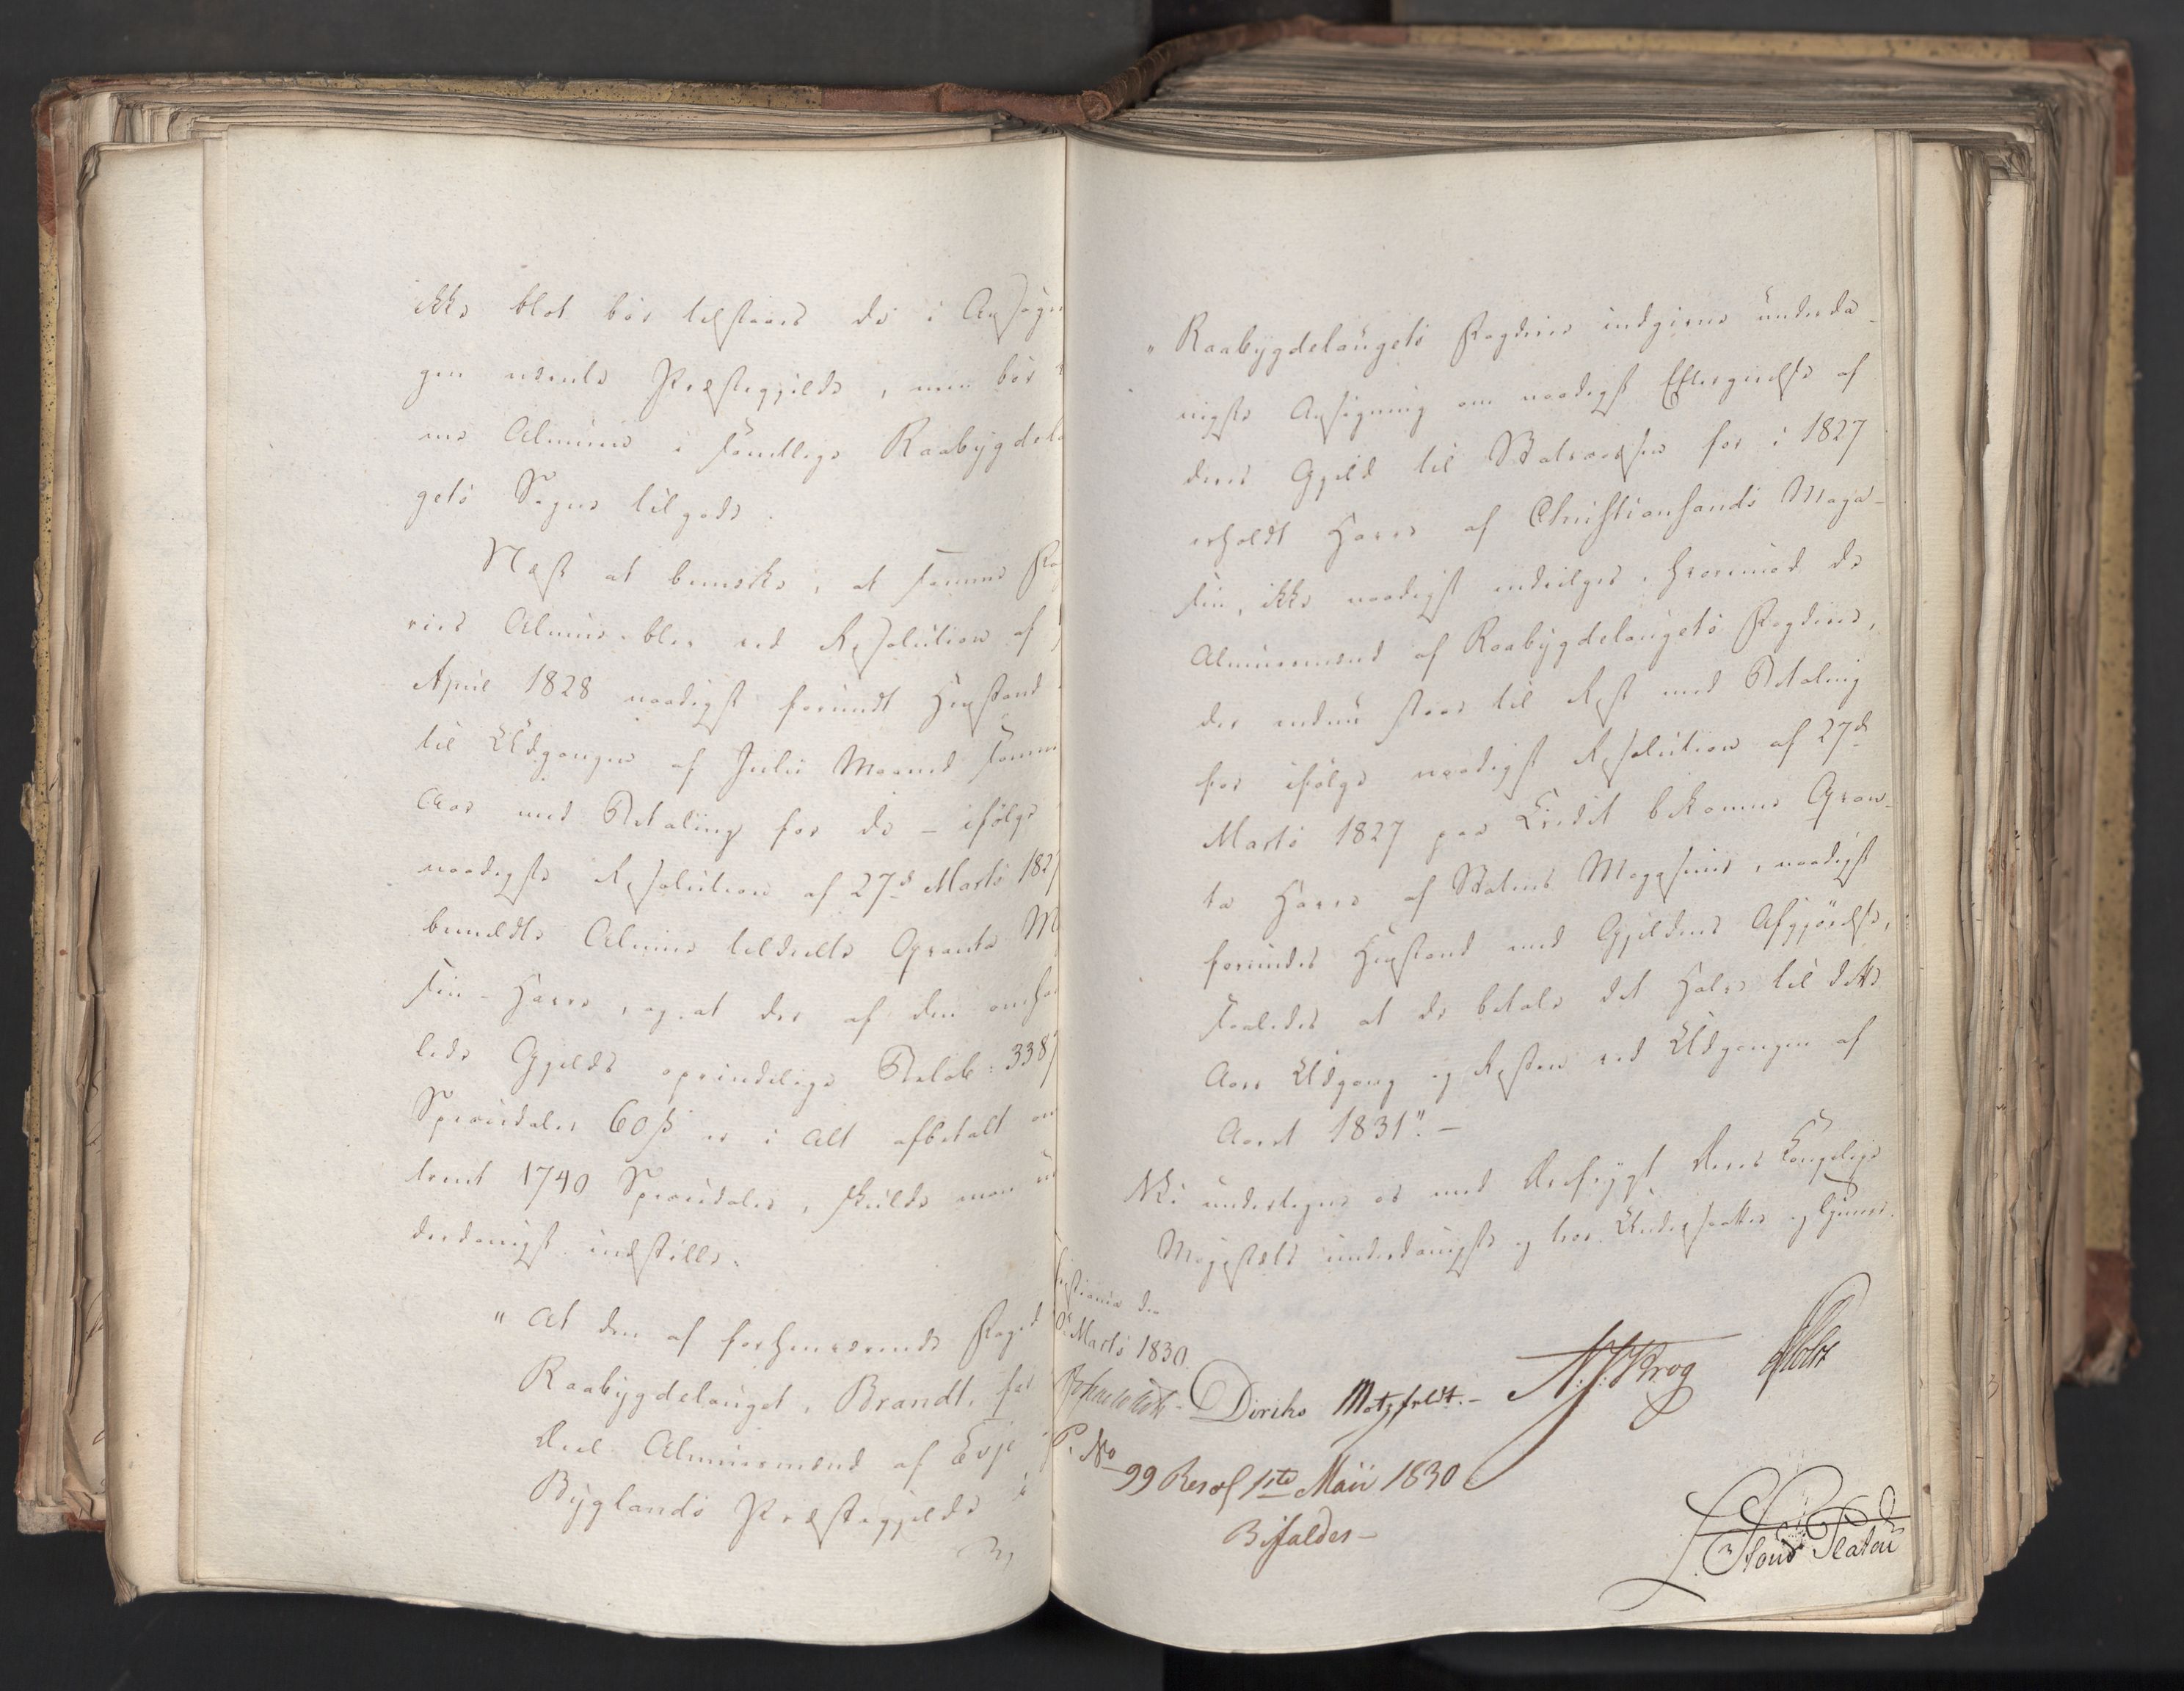 ikke blot bør tilstaaes de i Ansøgn
gen nævnte Præstegjelde, men bør
me Almue i samtlige Raabygdela
gets Sogne tilgode.
Næst at bemærke, at samme Fog
ries Almue blev ved Resolution af
April 1828 naadigst forundt Henstand
til Udgangen af Julii Maaned samme
Aar med Betaling for de – ifølge
naadigste Resolution af 27de Marts 1827
bemeldte Almue tildeelte Qvanta Ma
sin-Havre, og at der af den omhan
lede Gjelds oprindelige Beløb: 3387
Speciedaler 60 ß er i Alt afbetalt om
trent 1740 Speciedaler, skulde man un
derdanigst indstille:
"At den af forhenværende Foged
Raabygdelauget, Brandt, for
Deel Almuesmænd af Evje
Byglands Præstegjelde i
" Raabygdelaugets Fogderie indgivne underda-
nigste Ansøgning om naadigst Eftergivelse af
deres Gjeld til Statscassen for i 1827
erholdt Havre af Christiansands Maga-
sin, ikke naadigst indvilges, hvorimod de
Almuesmænd af Raabygdelaugets Fogderie,
der endnu staae til Rest med Betaling
for ifølge naadigst Resolution af 27de
Marts 1827 paa Credit bekomne Qvan-
ta Havre af Statens Magasiner, naadigst
forundes Henstand med Gjeldens Afgjørelse,
saaledes at de betale det Halve til dette
Aars Udgang og Resten ved Udgangen af
Aaret 1831". –
Vi undertegne os med Ærefrygt Deres Kongelige
Majestæts underdanigste og troe Undersaatter og Tjenere.
istiania den
Marts 1830.
Diriks Motzfeldt. – N. J. Krog Holst
P. No 99 Res af 1ste Maii 1830
Bifaldes –
L. Stoud Platou